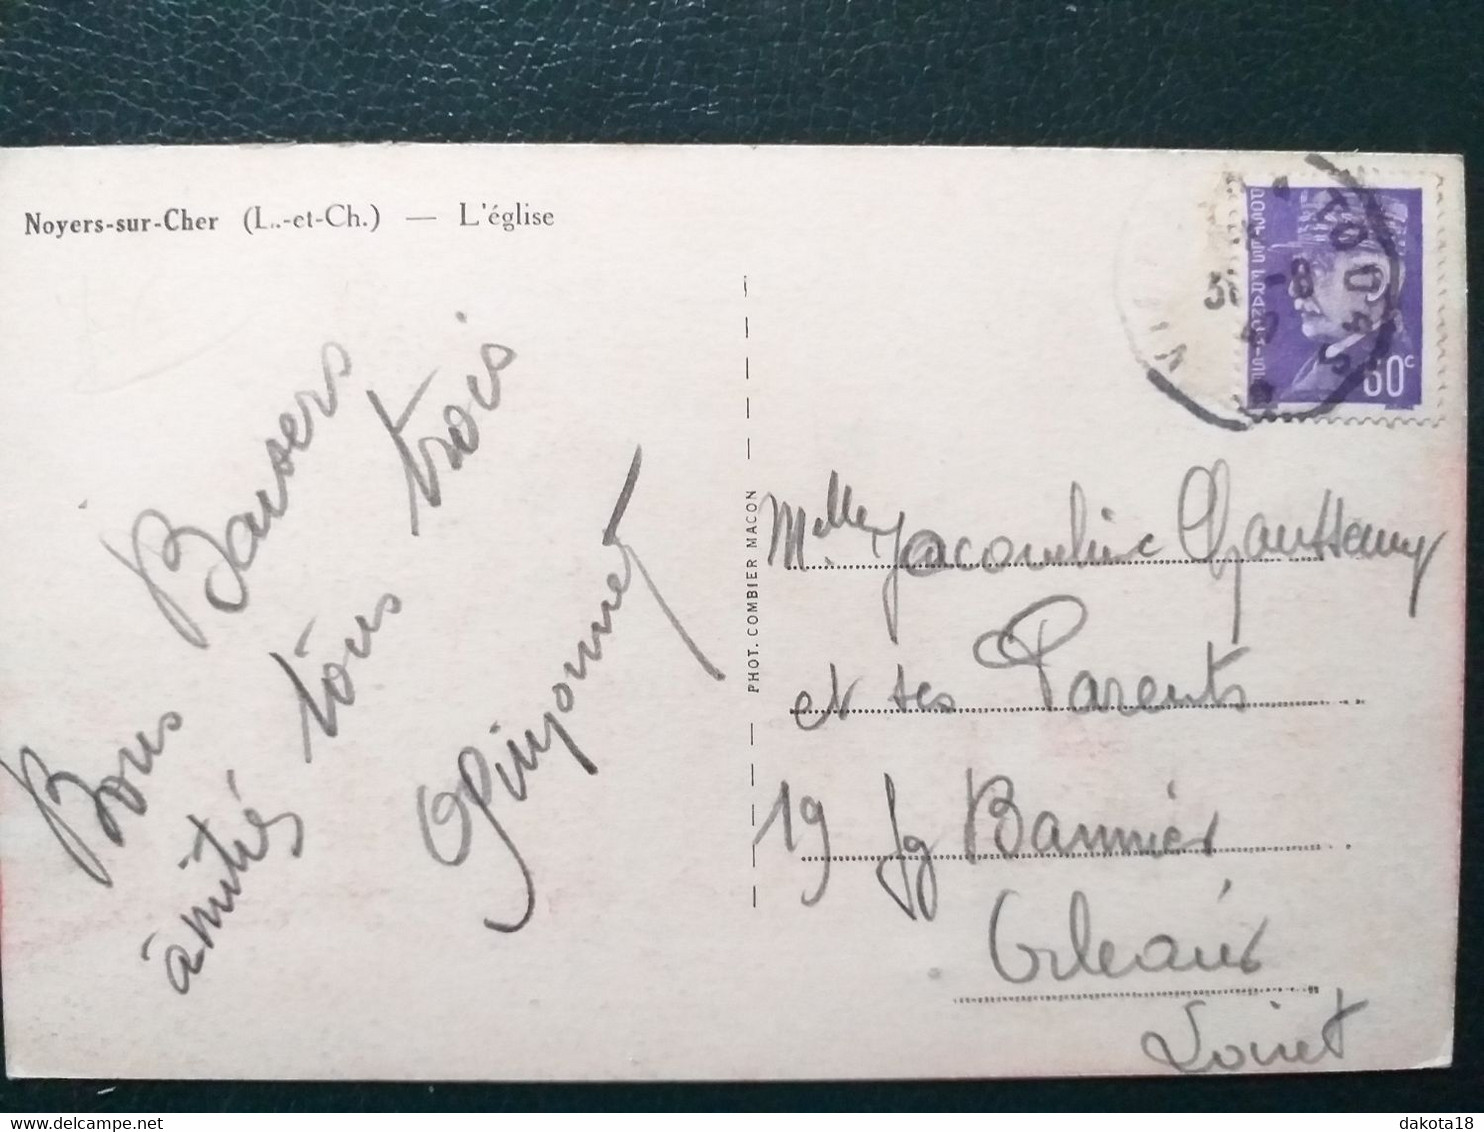 Noyers-sur-Cher (L.-et-Ch.) — L'église
Bons Baisers
amitiés tous trois
PHOT. COMBIER MACON
31 -8
42
POSTES FRANÇAISES
60c
Melle Jacqueline
et ses Parents
19 fg Bannier
Orléans
Loiret
dakota18